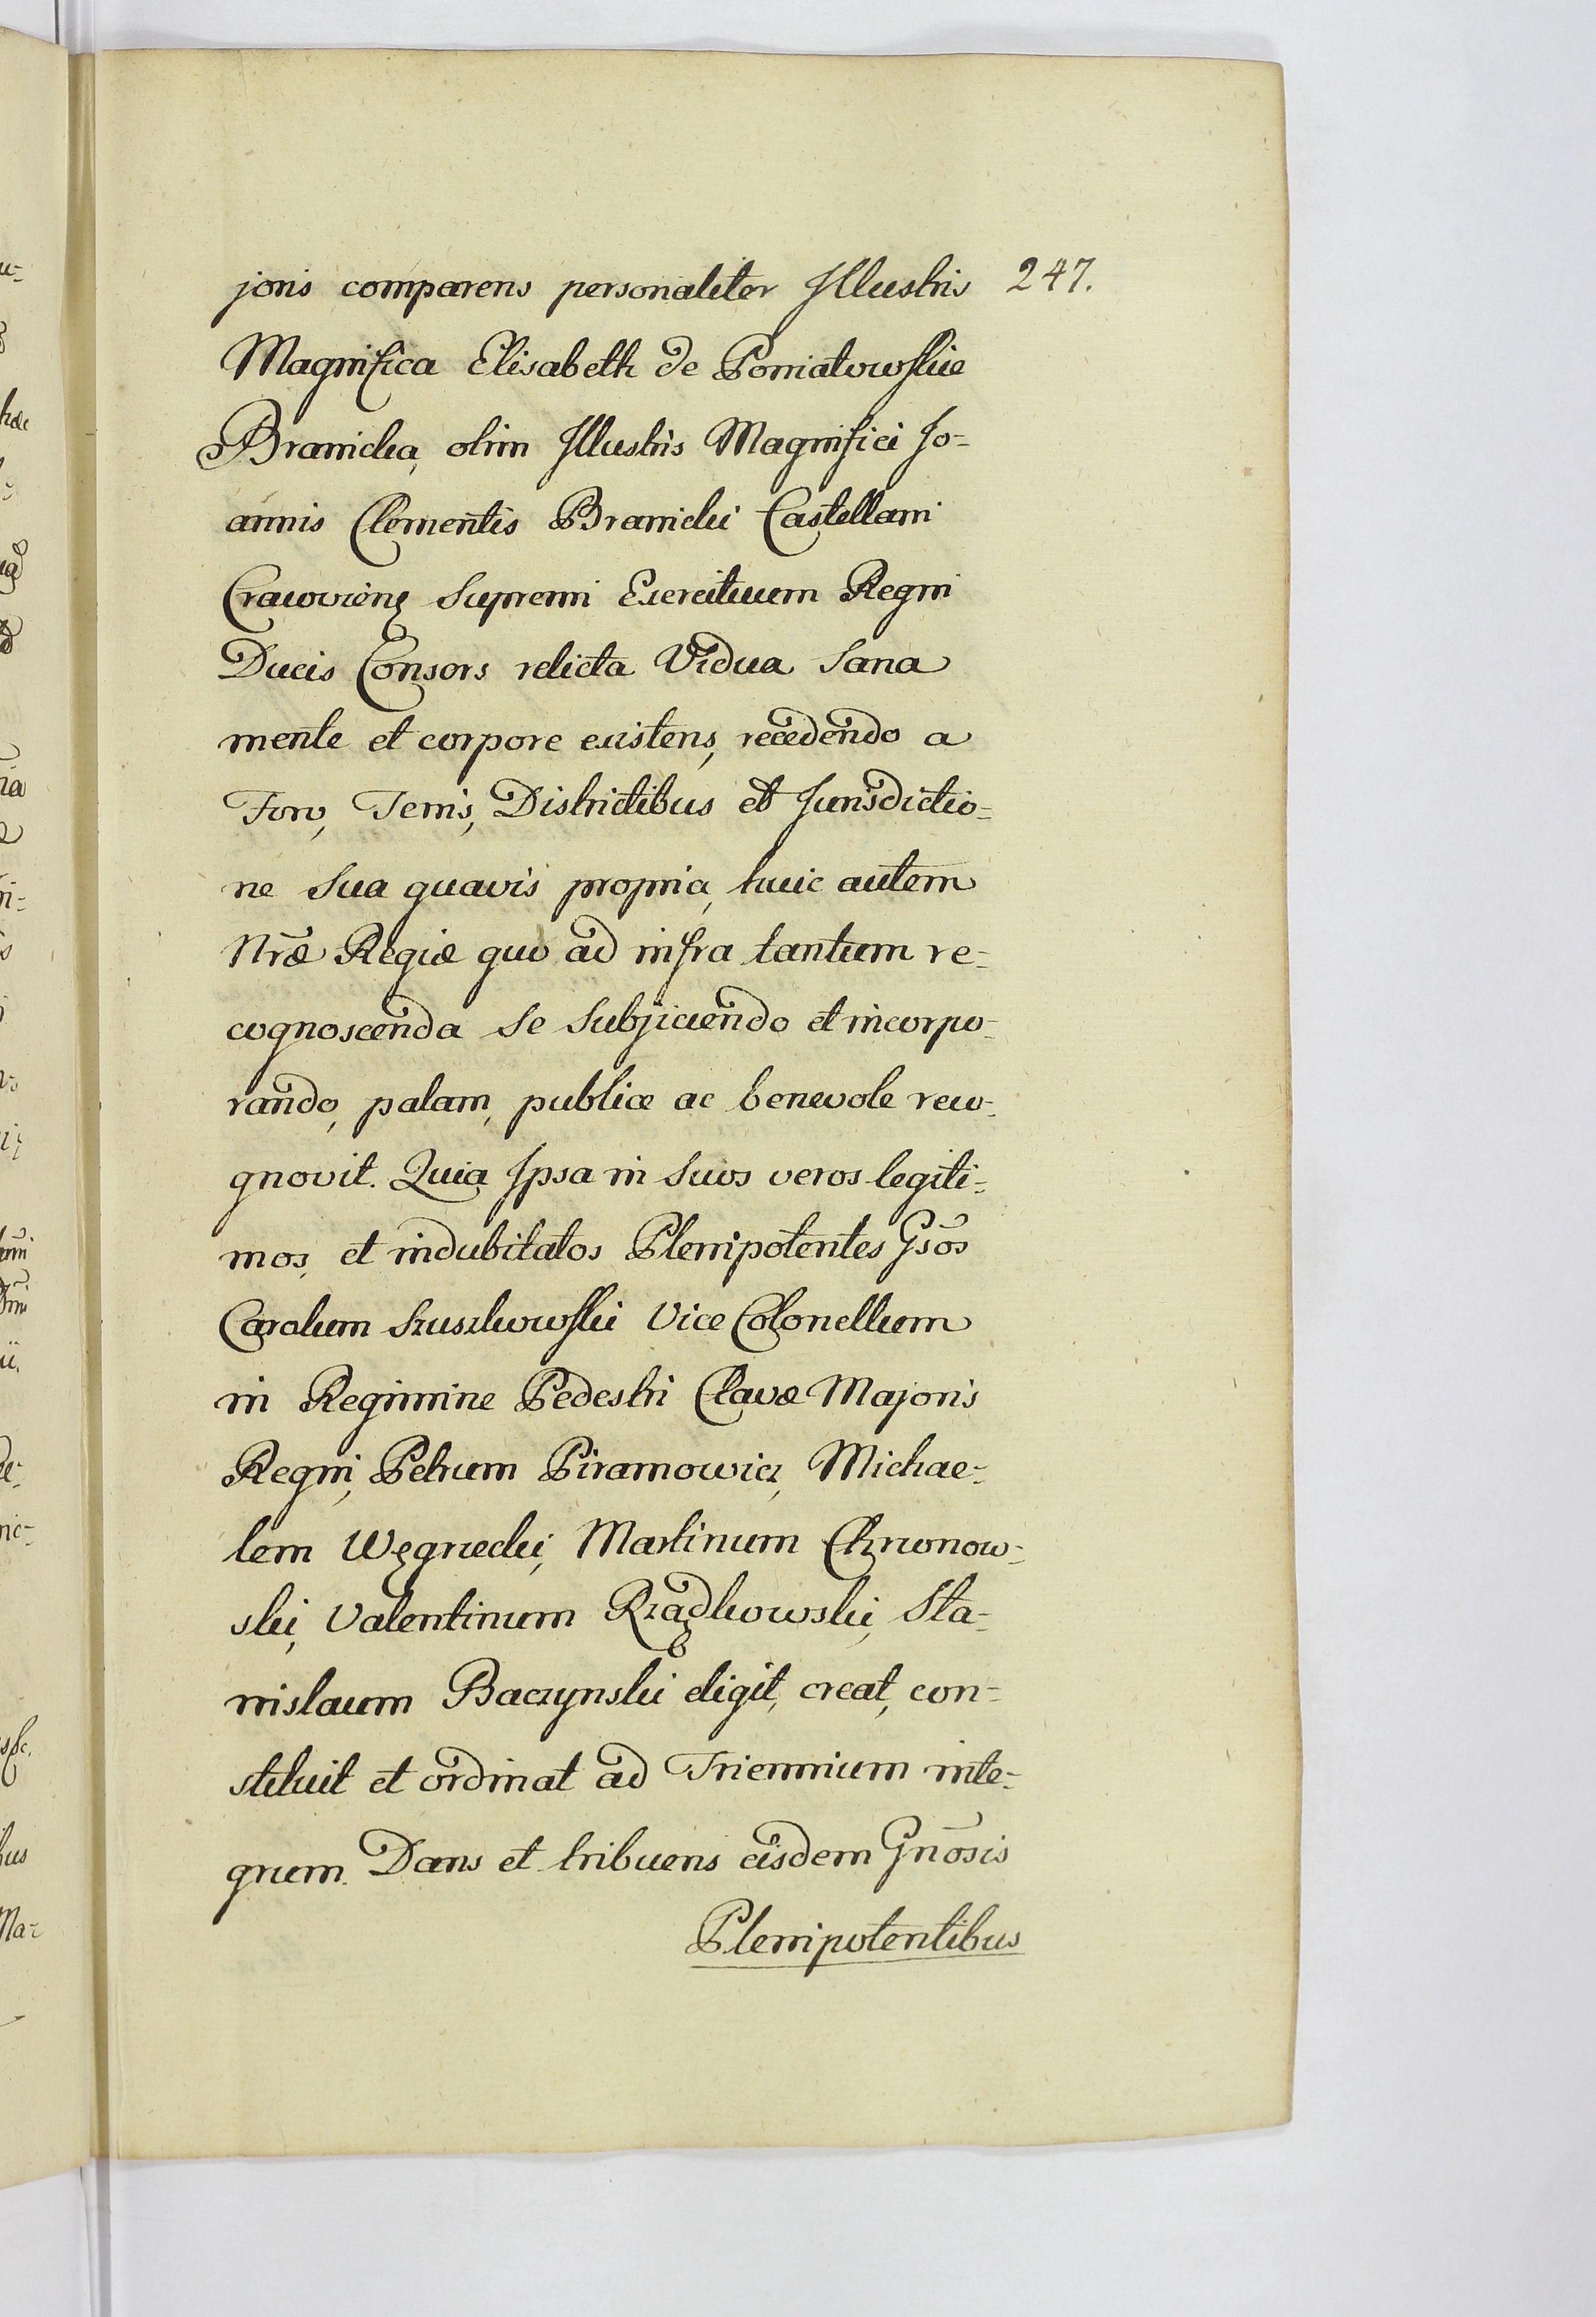 joris comparens personaliter Illustris 247.
Magnifica Elisabeth de Poniatowskie
Branicka, olim Illustris Magnifici Jo-
annis Clementis Branicki Castellani
Cracovieñs Supremi Exercituum Regni
Ducis Consors relicta Vidua Sana
mente et corpore existens, recedendo a
Foro, Terris, Districtibus et Jurisdictio-
ne Sua quavis propria, huic autem
Nræ Regiæ quo ad infra tantum re-
cognoscenda Se Subjiciendo et incorpo-
rando, palam, publice ac benevole reco-
gnovit. Quia Ipsa in Suos veros legiti-
mos, et indubitatos Plenipotentes Gsõs
Carolum Szuszkowski Vice Colonellum
in Regimine Pedestri Clavæ Majoris
Regni, Petrum Piramowicz, Michae-
lem Węgrzecki, Martinum Chrzonow-
ski, Valentinum Rządkowski, Sta-
nislaum Baczynski eligit, creat, con-
stituit et ordinat ad Triennium inte-
grum. Dans et tribuens eisdem Gnõsis
Plenipotentibus